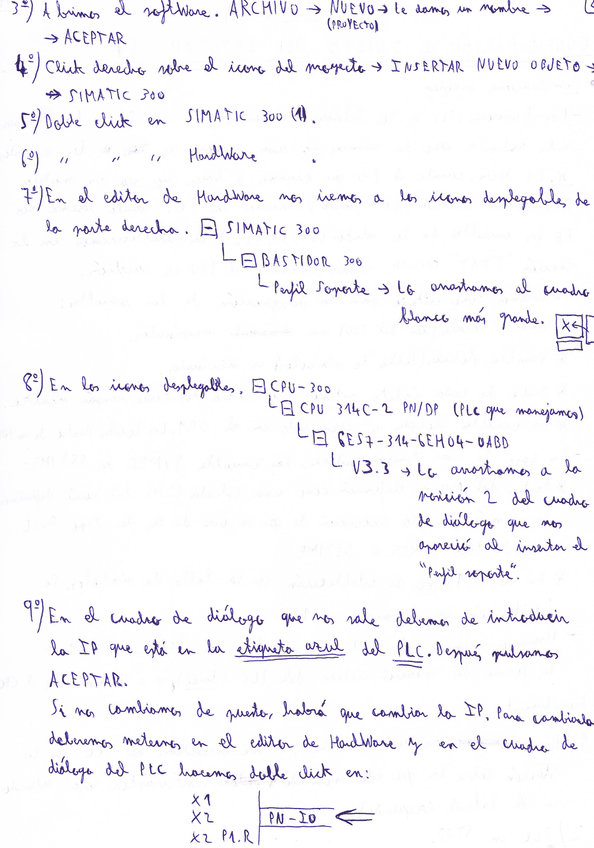 3º) Abrimos el software. ARCHIVO → NUEVO → Le damos un nombre →
(PROYECTO)
→ ACEPTAR
4º) Click derecho sobre el icono del proyecto → INSERTAR NUEVO OBJETO →
→ SIMATIC 300
5º) Doble click en SIMATIC 300 (1).
6º) " " " HardWare .
7º) En el editor de HardWare nos iremos a los iconos desplegables de
la parte derecha. ⊟ SIMATIC 300
⊟ BASTIDOR 300
Perfil Soporte → Lo arrastramos al cuadro
blanco más grande. X ←
8º) En los iconos desplegables, ⊟ CPU-300
⊟ CPU 314C-2 PN/DP (PLC que manejamos)
⊟ 6ES7-314-6EH04-0AB0
V3.3 → Lo arrastramos a la
posición 2 del cuadro
de diálogo que nos
apareció al insertar el
"Perfil soporte".
9º) En el cuadro de diálogo que nos sale debemos de introducir
la IP que está en la etiqueta azul del PLC. Después pulsamos
ACEPTAR.
Si nos cambiamos de puesto, habrá que cambiar la IP. Para cambiarla
deberemos meternos en el editor de HardWare y en el cuadro de
diálogo del PLC hacemos doble click en:
X1
X2 PN-IO ⇐
X2 P1.R